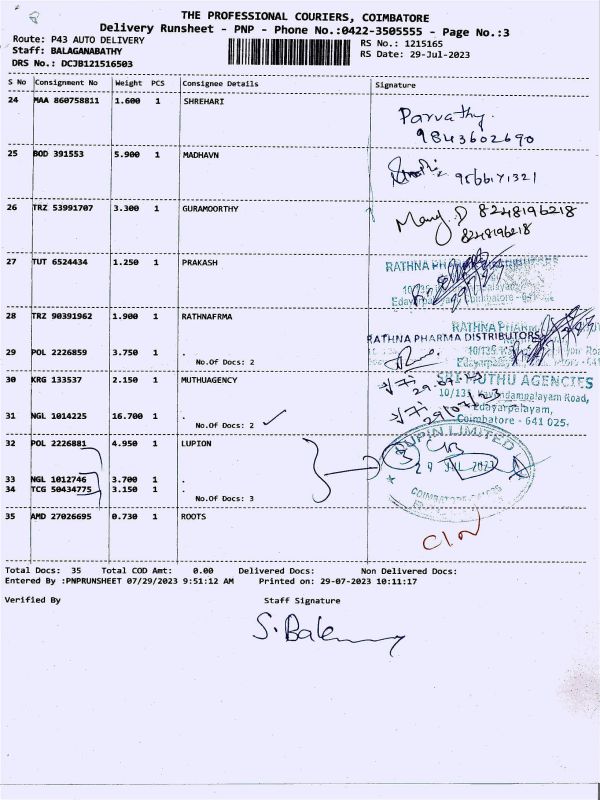 THE PROFESSIONAL COURIERS, COIMBATORE
Delivery Runsheet - PNP - Phone No.:0422-3505555 - Page No.:3
Route: P43 AUTO DELIVERY
RS No.: 1215165
Staff: BALAGANABATHY
RS Date: 29-Jul-2023
DRS No.: DCJB121516503
S No Consignment No Weight PCS Consignee Details Signature
24 MAA 860758811 1.600 1 SHREHARI
Parvathy.
9843602690
25 BOD 391553 5.900 1 MADHAVN
9566171321
26 TRZ 53991707 3.300 1 GURAMOORTHY
8248196218
8248196218
27 TUT 6524434 1.250 1 PRAKASH
28 TRZ 90391962 1.900 1 RATHNAFRMA
RATHNA PHARMA DISTRIBUTORS
29 POL 2226859 3.750 1 .
No.Of Docs: 2
30 KRG 133537 2.150 1 MUTHUAGENCY
SRI MUTHU AGENCIES
10/135, Kavundampalayam Road,
Edayarpalayam,
Coimbatore - 641 025.
31 NGL 1014225 16.700 1 .
No.Of Docs: 2
32 POL 2226881 4.950 1 LUPION
LUPIN LIMITED
29 JUL 2023
33 NGL 1012746 3.700 1 .
34 TCG 50434775 3.150 1 .
No.Of Docs: 3
35 AMD 27026695 0.730 1 ROOTS
Total Docs: 35 Total COD Amt: 0.00 Delivered Docs: Non Delivered Docs:
Entered By :PNPRUNSHEET 07/29/2023 9:51:12 AM Printed on: 29-07-2023 10:11:17
Verified By Staff Signature